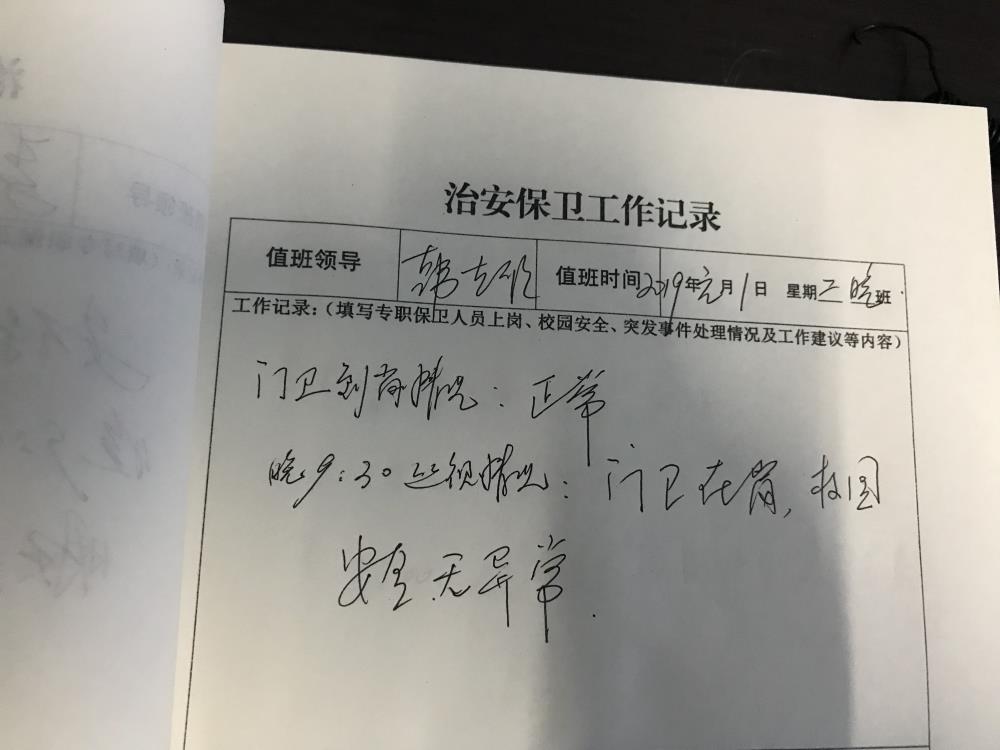 治安保卫工作记录
值班领导 韩 值班时间2019年元月1日 星期二晚班
工作记录:(填写专职保卫人员上岗、校园安全、突发事件处理情况及工作建议等内容)
门卫到岗情况:正常
晚9:30巡视情况:门卫在岗,校园
安全无异常.